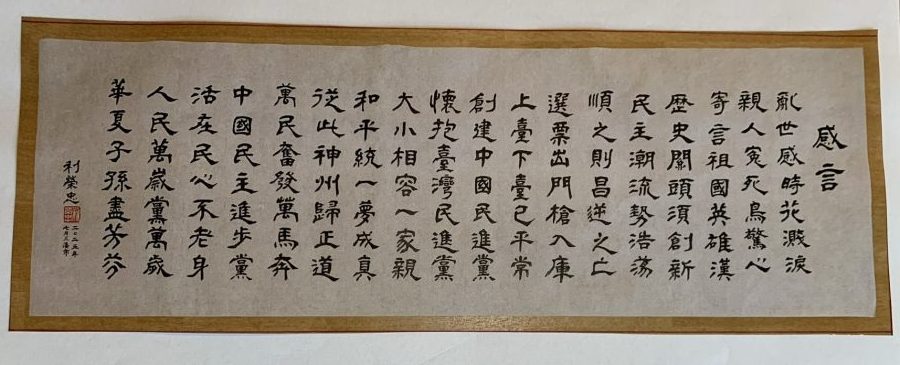 感言
亂世感時花濺淚
親人冤死鳥驚心
寄言祖國英雄漢
歷史關頭須創新
民主潮流勢浩蕩
順之則昌逆之亡
選票出門槍入庫
上臺下臺已平常
創建中國民進黨
懷抱臺灣民進黨
大小相容一家親
和平統一夢成真
從此神州歸正道
萬民奮發萬馬奔
中國民主進步黨
活在民心不老身
人民萬歲黨萬歲
華夏子孫盡芬芳
利榮忠
二〇二五年
七月